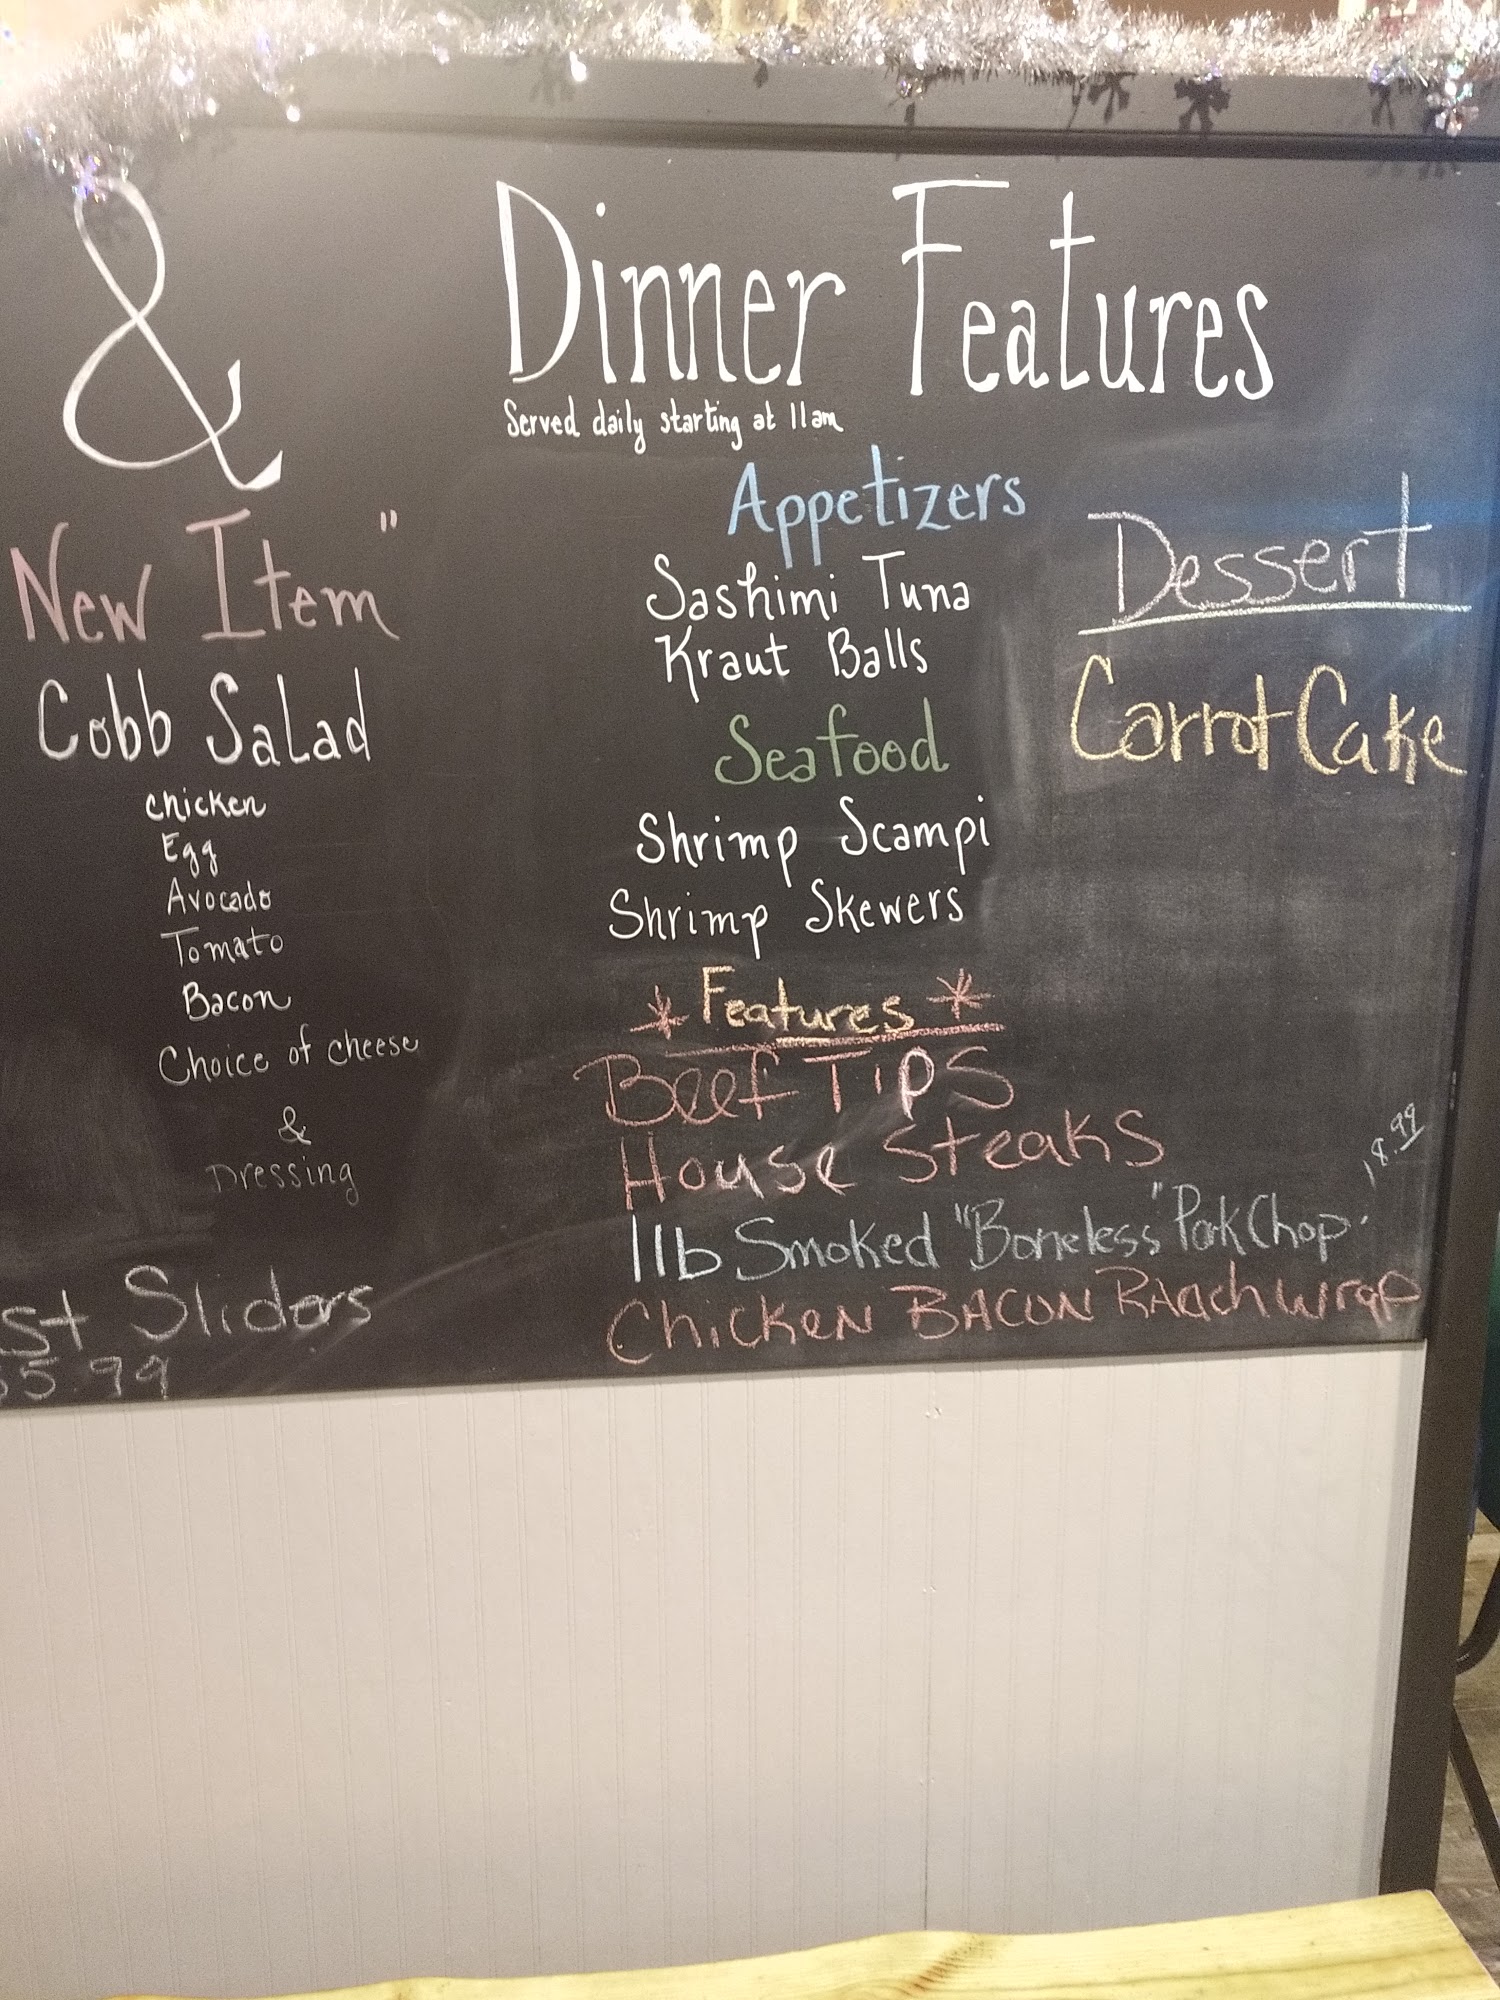 &
New Item"
Cobb Salad
chicken
Egg
Avocado
Tomato
Bacon
Choice of cheese
&
Dressing
st Sliders
5.99
Dinner Features
Served daily starting at 11am
Appetizers
Sashimi Tuna
Kraut Balls
Seafood
Shrimp Scampi
Shrimp Skewers
* Features *
Beef Tips
House Steaks
1lb Smoked "Boneless" Pork Chop. 18.99
Chicken BACON RAnch wrap
Dessert
Carrot Cake